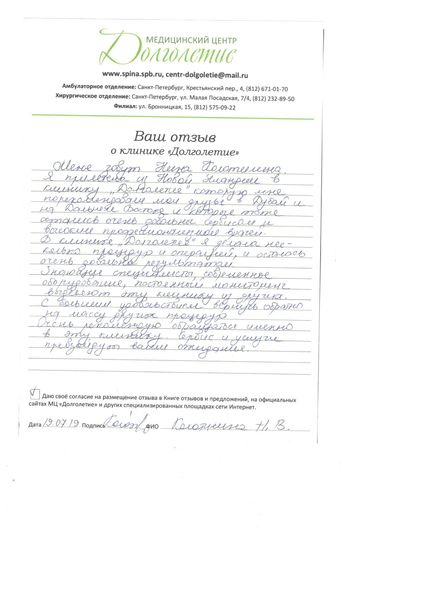 МЕДИЦИНСКИЙ ЦЕНТР
Долголетие
www.spina.spb.ru, centr-dolgoletie@mail.ru
Амбулаторное отделение: Санкт-Петербург, Крестьянский пер., 4, (812) 671-01-70
Хирургическое отделение: Санкт-Петербург, ул. Малая Посадская, 7/4, (812) 232-89-50
Филиал: ул. Бронницкая, 15, (812) 575-09-22
Ваш отзыв
о клинике «Долголетие»
Меня зовут Нина
Я прилетела из Новой Зеландии в
клинику "Долголетие" которую мне
порекомендовали мои друзья в Дубай и
на Дальнем Востоке и которые тоже
остались очень довольны сервисом и
высоким профессионализмом врачей
В клинике "Долголетие" я делала нес-
колько процедур и операций, и осталась
очень довольна результатам
Знающие специалисты, современное
оборудование, постоянный мониторинг
выделяют эту клинику из других.
С большим удовольствием вернусь обратно
на массу других процедур
Очень рекомендую обращаться именно
в эту клинику Сервис и услуги
превзойдут ваши ожидания.
Даю своё согласие на размещение отзыва в Книге отзывов и предложений, на официальных
сайтах МЦ «Долголетие» и других специализированных площадках сети Интернет.
Дата 19.07.19 Подпись ФИО Н. В.